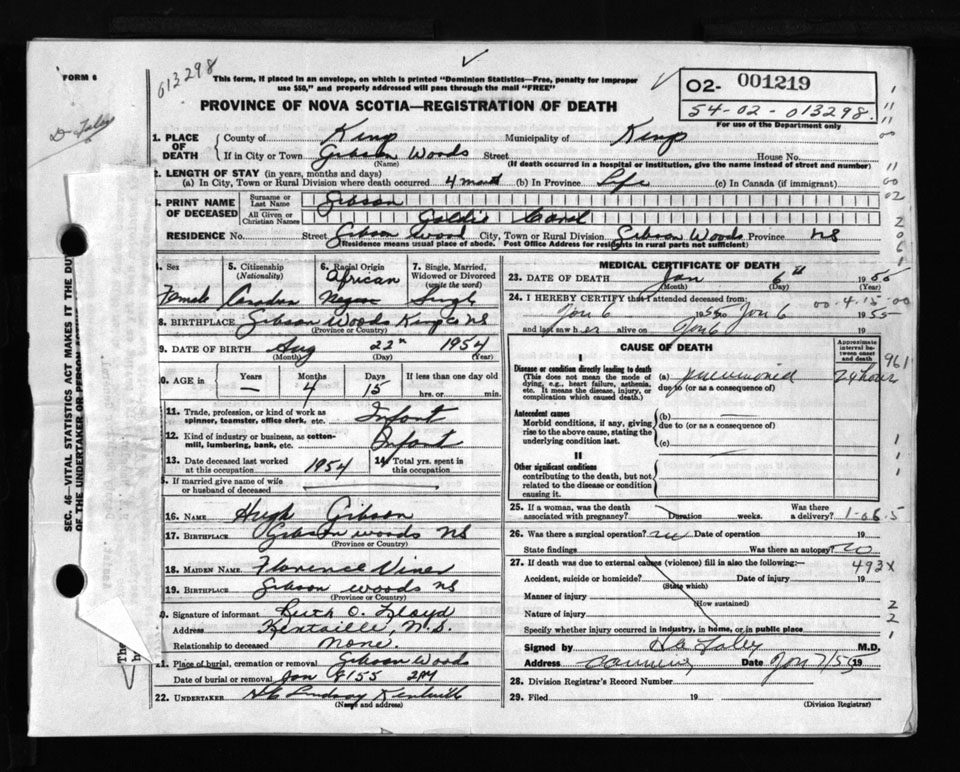 FORM 6
013298
This form, if placed in an envelope, on which is printed "Dominion Statistics—Free, penalty for improper
use $50," and properly addressed will pass through the mail "FREE"
O2- 001219
54-02-013298.
For use of the Department only
PROVINCE OF NOVA SCOTIA—REGISTRATION OF DEATH
Dr Foley
1. PLACE OF DEATH
County of Kings Municipality of Kings
If in City or Town Gibson Woods Street House No.
(Name) (If death occurred in a hospital or institution, give the name instead of street and number)
2. LENGTH OF STAY (in years, months and days)
(a) In City, Town or Rural Division where death occurred 4 mont (b) In Province Life (c) In Canada (if immigrant)
3. PRINT NAME OF DECEASED
Surname or Last Name Gibson
All Given or Christian Names Goldie Carol
RESIDENCE No. Street Gibson Wood City, Town or Rural Division Gibson Woods Province NS
(Residence means usual place of abode. Post Office Address for residents in rural parts not sufficient)
4. Sex Female
5. Citizenship (Nationality)
6. Racial Origin African Negro
7. Single, Married, Widowed or Divorced (write the word) Single
8. BIRTHPLACE Gibson Woods Kings Co NS
(Province or Country)
9. DATE OF BIRTH Aug 22 1954
(Month) (Day) (Year)
10. AGE in Years — Months 4 Days 15 If less than one day old hrs. or min.
11. Trade, profession, or kind of work as spinner, teamster, office clerk, etc. Infant
12. Kind of industry or business, as cotton-mill, lumbering, bank, etc. Infant
13. Date deceased last worked at this occupation 1954 14. Total yrs. spent in this occupation
15. If married give name of wife or husband of deceased
16. NAME Hugh Gibson
17. BIRTHPLACE Gibson Woods NS
(Province or Country)
18. MAIDEN NAME Florence Viner
19. BIRTHPLACE Gibson Woods NS
(Province or Country)
20. Signature of informant Ruth O. Lloyd
Address Kentville, N.S.
Relationship to deceased None.
21. Place of burial, cremation or removal Gibson Woods
Date of burial or removal Jan 8/55 2PM
22. UNDERTAKER Lindsay
(Name and address)
MEDICAL CERTIFICATE OF DEATH
23. DATE OF DEATH Jan 6th 1955
(Month) (Day) (Year)
24. I HEREBY CERTIFY that I attended deceased from:
00.4.15.00
Jan 6 1955 to Jan 6 1955
and last saw her alive on Jan 6 19
CAUSE OF DEATH
Approximate interval between onset and death
961
I
Disease or condition directly leading to death
(This does not mean the mode of dying, e.g., heart failure, asthenia, etc. It means the disease, injury, or complication which caused death)
(a) pneumonia 24 hours
due to (or as a consequence of)
Antecedent causes
Morbid conditions, if any, giving rise to the above cause, stating the underlying condition last.
(b)
due to (or as a consequence of)
(c)
II
Other significant conditions
contributing to the death, but not related to the disease or condition causing it.
25. If a woman, was the death associated with pregnancy? Duration weeks. Was there a delivery?
1-06.5
26. Was there a surgical operation? no Date of operation 19
State findings Was there an autopsy? no
27. If death was due to external causes (violence) fill in also the following:—
493X
Accident, suicide or homicide? Date of injury 19
(State which)
Manner of injury
(How sustained)
Nature of injury
Specify whether injury occurred in industry, in home, or in public place
Signed by Foley M.D.
Address Canning Date Jan 7/55 19
28. Division Registrar's Record Number
29. Filed 19
(Division Registrar)
SEC. 46—VITAL STATISTICS ACT MAKES IT THE DU
OF THE UNDERTAKER OR PERSON